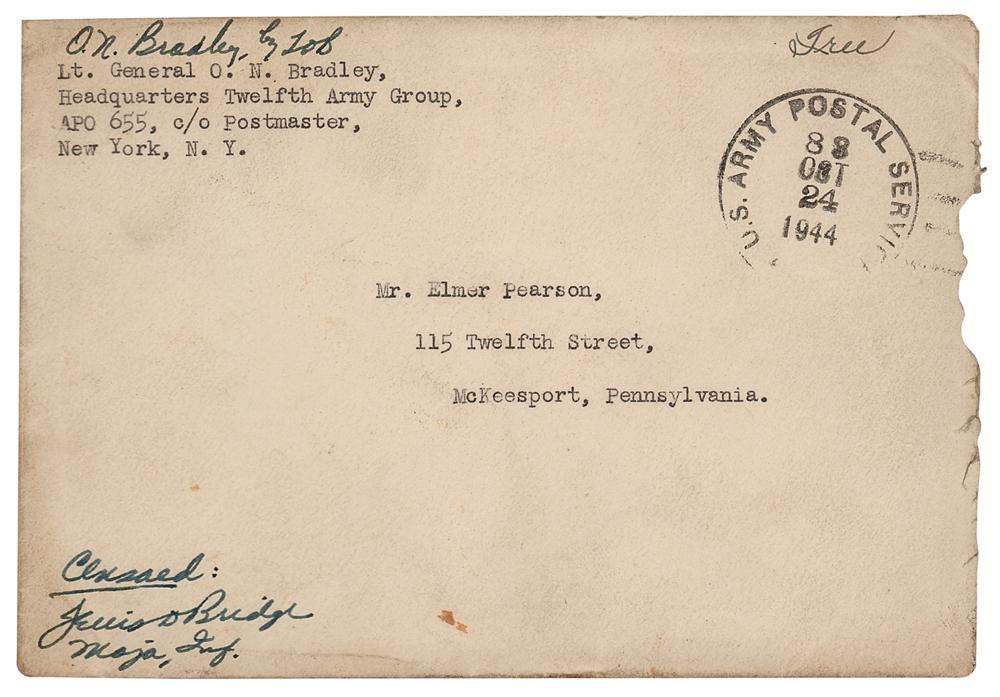 O. N. Bradley, by LDB
Free
Lt. General O. N. Bradley,
Headquarters Twelfth Army Group,
APO 655, c/o Postmaster,
New York, N. Y.
U.S. ARMY POSTAL SERVIC
8
OCT
24
1944
Mr. Elmer Pearson,
115 Twelfth Street,
McKeesport, Pennsylvania.
Censored:
Lewis D Bridge
Major, Inf.